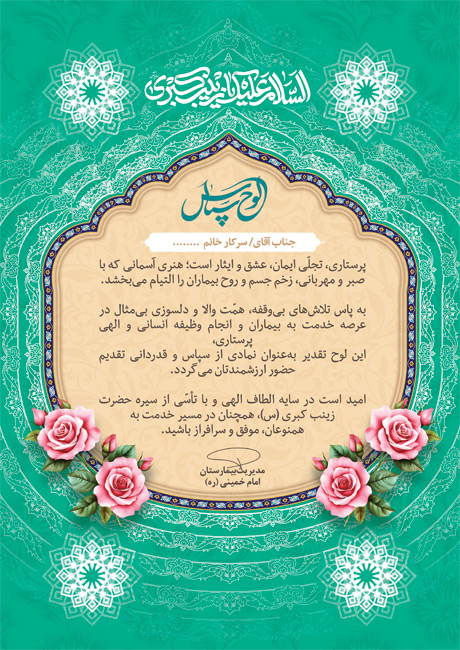 السلام علیک یا زینب کبری
لوح سپاس
جناب آقای/ سرکار خانم ........
پرستاری، تجلّی ایمان، عشق و ایثار است؛ هنری آسمانی که با
صبر و مهربانی، زخم جسم و روح بیماران را التیام می‌بخشد.
به پاس تلاش‌های بی‌وقفه، همّت والا و دلسوزی بی‌مثال در
عرصه خدمت به بیماران و انجام وظیفه انسانی و الهی
پرستاری،
این لوح تقدیر به‌عنوان نمادی از سپاس و قدردانی تقدیم
حضور ارزشمندتان می‌گردد.
امید است در سایه الطاف الهی و با تأسّی از سیره حضرت
زینب کبری (س)، همچنان در مسیر خدمت به
همنوعان، موفق و سرافراز باشید.
مدیریت بیمارستان
امام خمینی (ره)